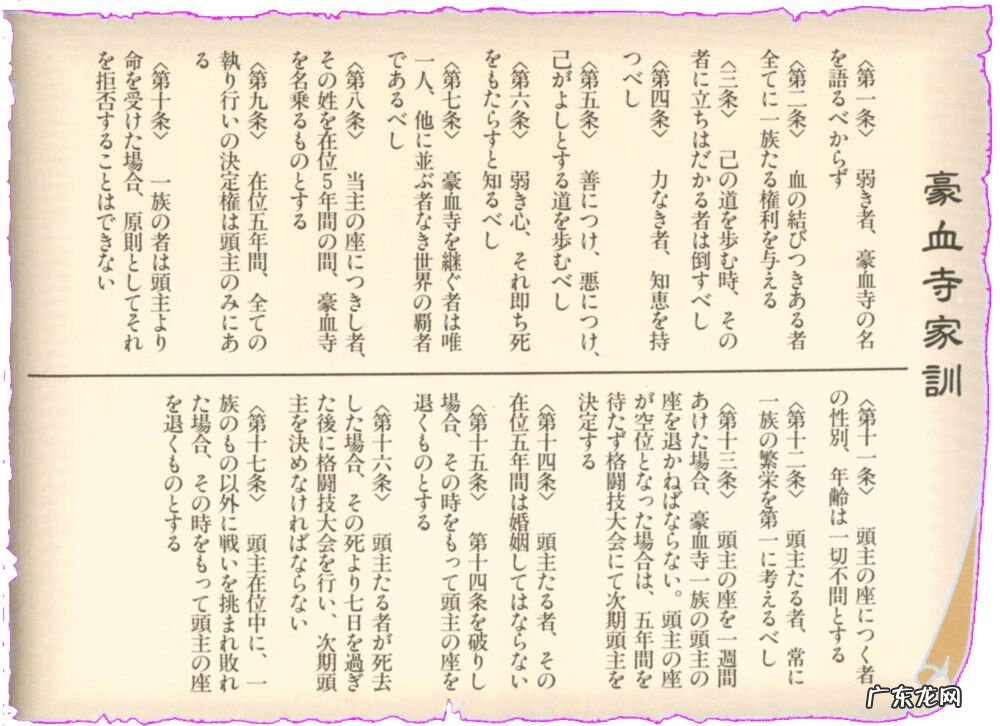 豪血寺家訓
〈第一条〉　弱き者、豪血寺の名
を語るべからず
〈第二条〉　血の結びつきある者
全てに一族たる権利を与える
〈三条〉　己の道を歩む時、その
者に立ちはだかる者は倒すべし
〈第四条〉　力なき者、知恵を持
つべし
〈第五条〉　善につけ、悪につけ、
己がよしとする道を歩むべし
〈第六条〉　弱き心、それ即ち死
をもたらすと知るべし
〈第七条〉　豪血寺を継ぐ者は唯
一人、他に並ぶ者なき世界の覇者
であるべし
〈第八条〉　当主の座につきし者、
その姓を在位5年間の間、豪血寺
を名乗るものとする
〈第九条〉　在位五年間、全ての
執り行いの決定権は頭主のみにあ
る
〈第十条〉　一族の者は頭主より
命を受けた場合、原則としてそれ
を拒否することはできない
〈第十一条〉　頭主の座につく者
の性別、年齢は一切不問とする
〈第十二条〉　頭主たる者、常に
一族の繁栄を第一に考えるべし
〈第十三条〉　頭主の座を一週間
あけた場合、豪血寺一族の頭主の
座を退かねばならない。頭主の座
が空位となった場合は、五年間を
待たず格闘技大会にて次期頭主を
決定する
〈第十四条〉　頭主たる者、その
在位五年間は婚姻してはならない
〈第十五条〉　第十四条を破りし
場合、その時をもって頭主の座を
退くものとする
〈第十六条〉　頭主たる者が死去
した場合、その死より七日を過ぎ
た後に格闘技大会を行い、次期頭
主を決めなければならない
〈第十七条〉　頭主在位中に、一
族のもの以外に戦いを挑まれ敗れ
た場合、その時をもって頭主の座
を退くものとする
广东龙网